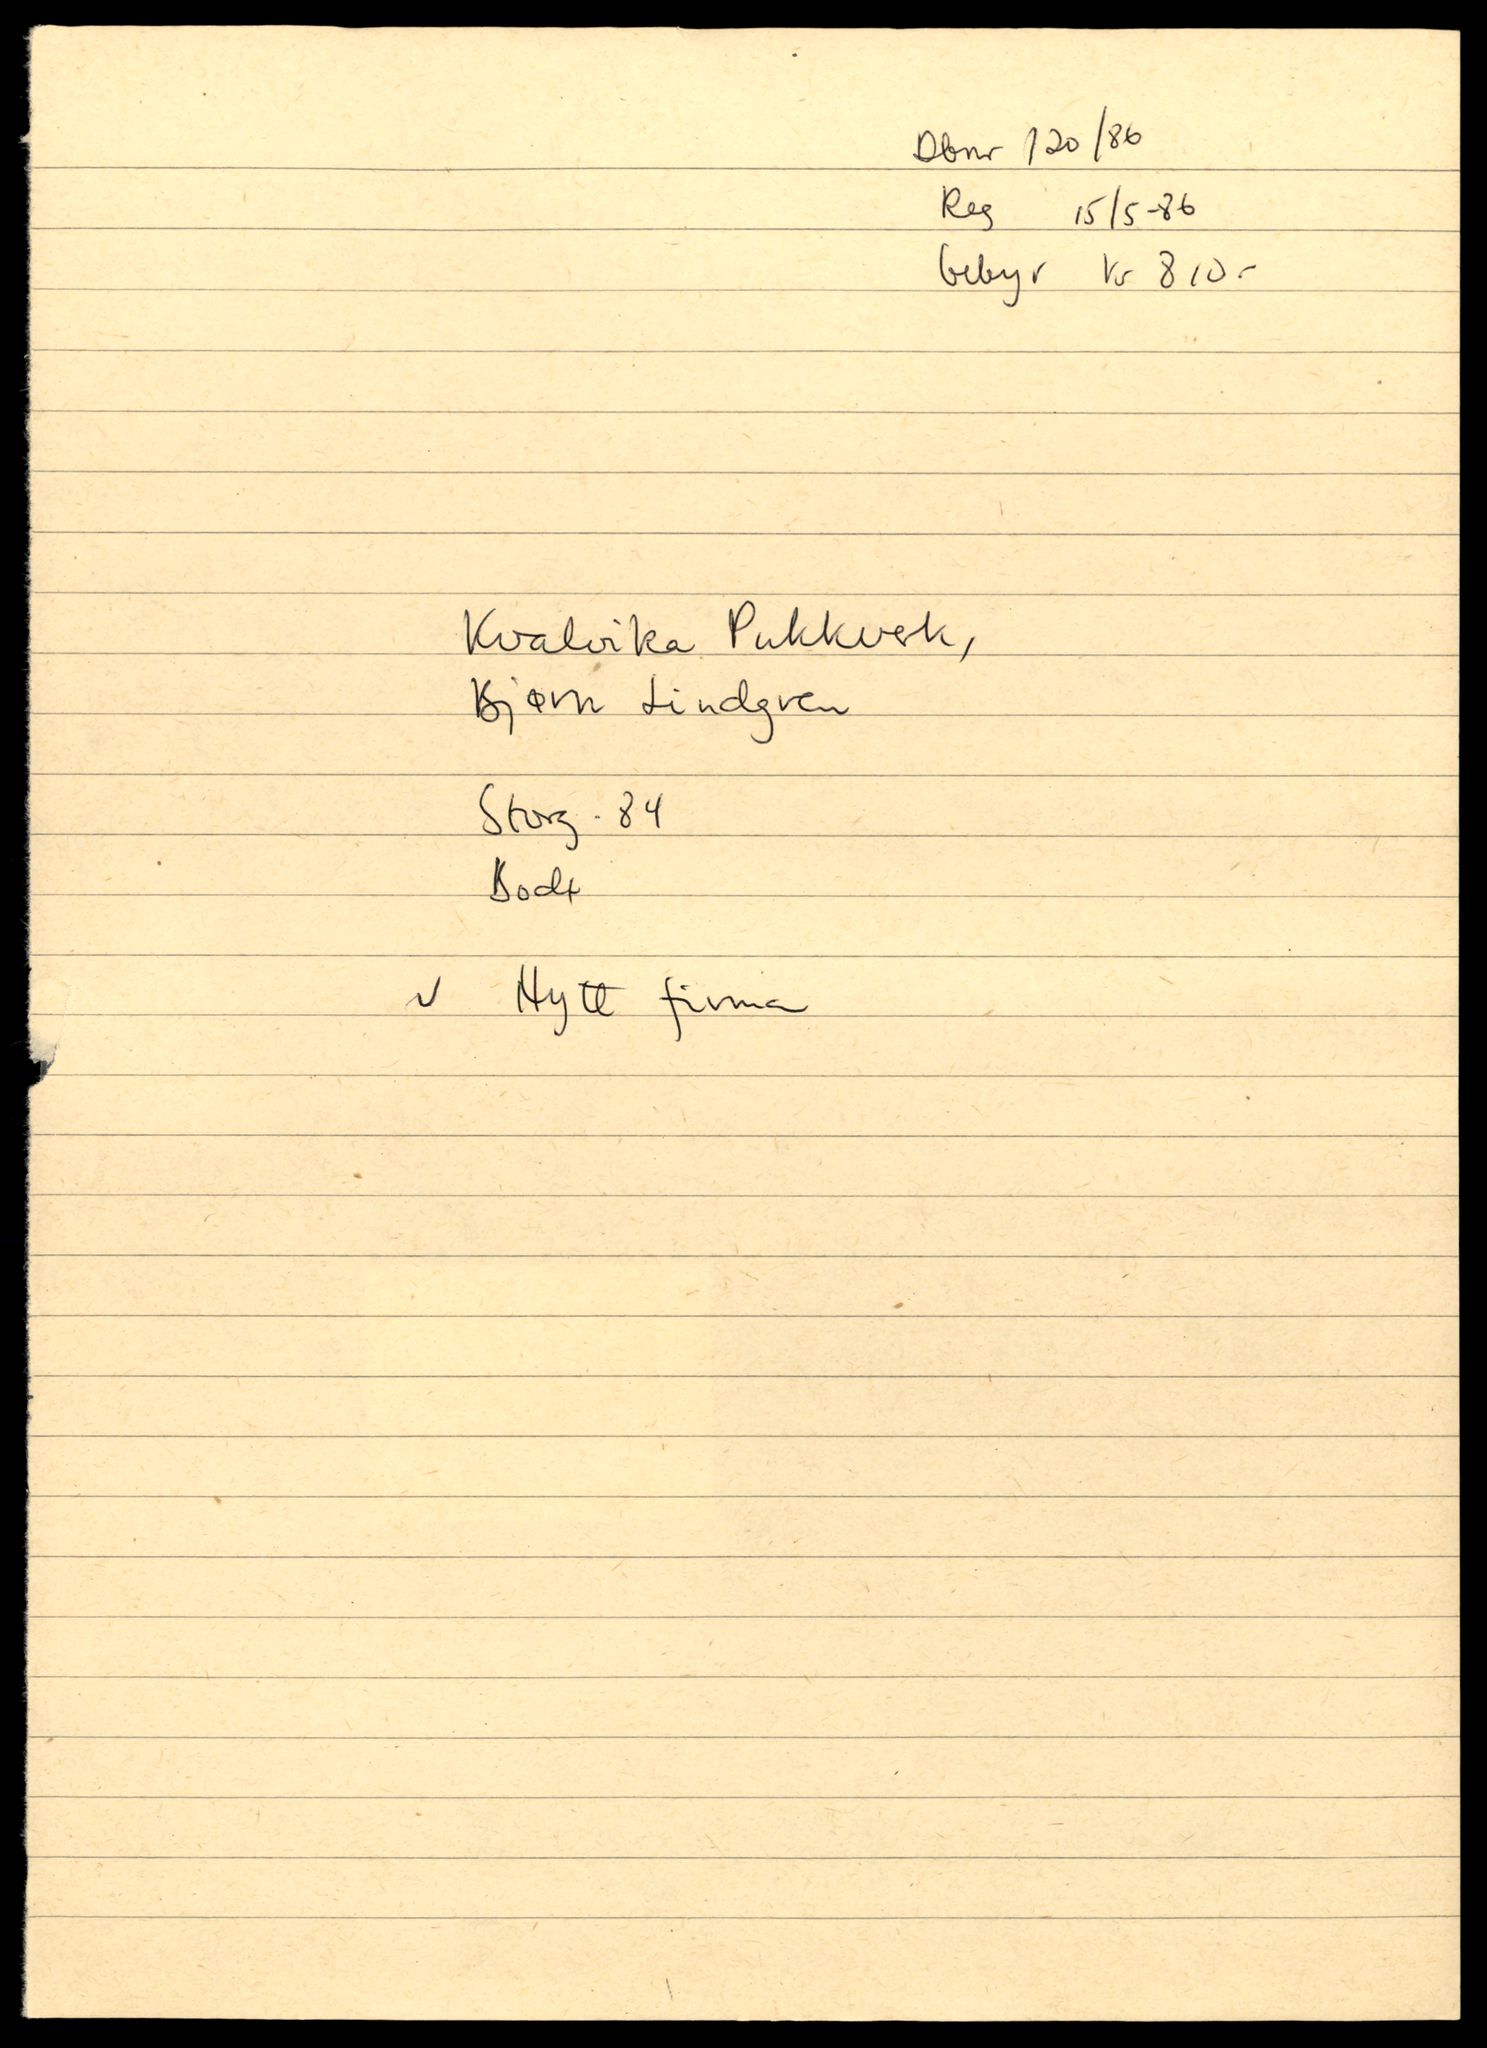 Dbnr 120/86
Reg 15/5-86
Gebyr kr 810-
Kvalvika Pukkverk,
Bjørn Lindgren
Storg. 84
Bodø
✓ Nytt firma